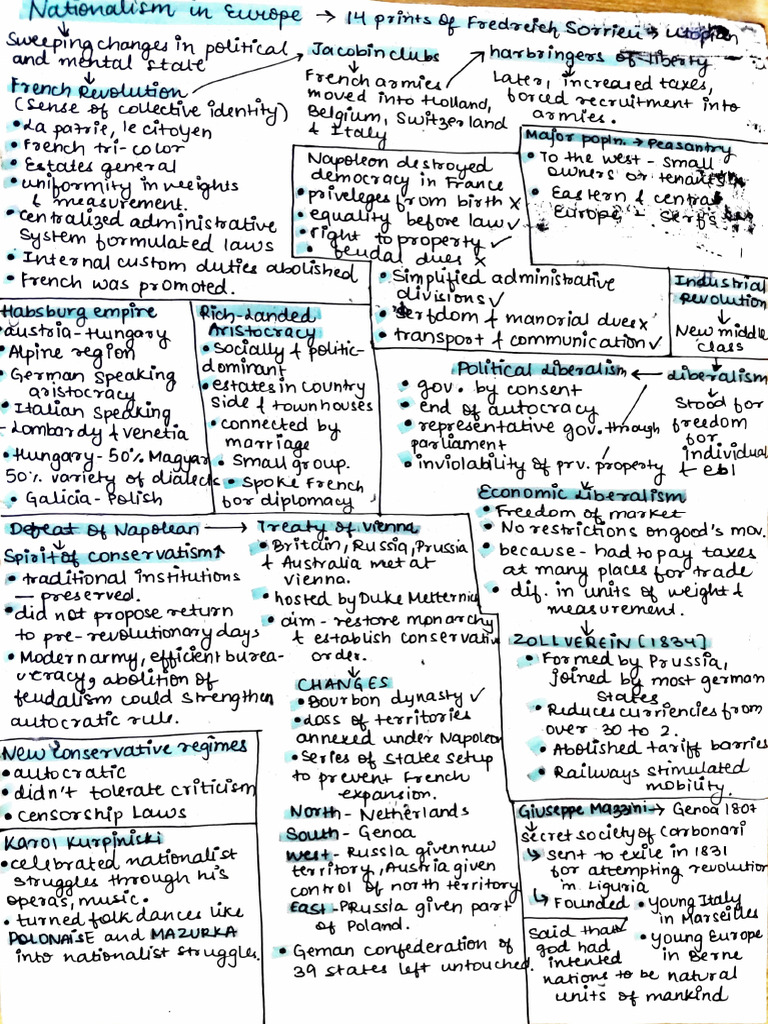 Nationalism in Europe → 14 prints of Fredreich Sorrieu → utopian
Sweeping changes in political
and mental state
French Revolution
(Sense of collective identity)
• La patrie, le citoyen
• French tri-color
• Estates general
• uniformity in weights
& measurement.
• centralized administrative
system formulated laws
• Internal custom duties abolished
• French was promoted.
Jacobin clubs
French armies
moved into Holland,
Belgium, Switzerland
& Italy
harbringers of liberty
Later, increased taxes,
forced recruitment into
armies.
Major popln. → Peasantry
• To the west - small
owners or tenants
• Eastern & central
Europe - serfs
Napoleon destroyed
democracy in France
• priveleges from birth x
• equality before law ✓
• right to property ✓
• feudal dues x
• Simplified administrative
divisions ✓
• serfdom & manorial dues x
• transport & communication ✓
Industrial
Revolution
↓
New middle
class
liberalism
↓
Stood for
freedom
for
individual
& ebl
Political liberalism ←
• gov. by consent
• end of autocracy
• representative gov. through
parliament
• inviolability of prv. property
Habsburg empire
• austria-Hungary
• Alpine region
• German speaking
aristocracy
• Italian speaking
- Lombardy & venetia
• Hungary - 50% Magyar
50% variety of dialects
• Galicia - Polish
Rich-Landed
Aristocracy
• socially & politic-
dominant
• estates in country
side & townhouses
• connected by
marriage
• Small group.
• Spoke French
for diplomacy
Economic liberalism
• Freedom of market
• No restrictions on good's mov.
• because - had to pay taxes
at many places for trade
• dif. in units of weight &
measurement.
↓
ZOLLVEREIN [1834]
• Formed by Prussia,
joined by most german
states
• Reduces currencies from
over 30 to 2.
• Abolished tariff barries
• Railways stimulated
mobility.
Defeat of Napolean → Treaty of vienna
Spirit of conservatism↑
• traditional institutions
— preserved.
• did not propose return
to pre-revolutionary days
• Modern army, efficient burea-
ucracy, abolition of
feudalism could strengthen
autocratic rule.
• Britain, Russia, Prussia
& Australia met at
vienna.
• hosted by Duke Metternich
• aim - restore monarchy
& establish conservative
order.
↓
CHANGES
• Bourbon dynasty ✓
• loss of territories
annexed under Napoleon
• series of states setup
to prevent French
expansion.
North - Netherlands
South - Genoa
West - Russia given new
territory, Austria given
control of north territory
East - PRussia given part
of Poland.
• Geman confederation of
39 states left untouched.
New conservative regimes
• autocratic
• didn't tolerate criticism
• censorship Laws
Karol Kurpiniski
• celebrated nationalist
struggles through his
operas, music.
• turned folk dances like
POLONAISE and MAZURKA
into nationalist struggles.
Giuseppe Mazzini → Genoa 1807
secret society of Carbonari
↳ sent to exile in 1831
for attempting revolution
in Liguria
↳ Founded • young Italy
in Marseilles
• young Europe
in Berne
Said that
god had
intented
nations to be natural
units of mankind